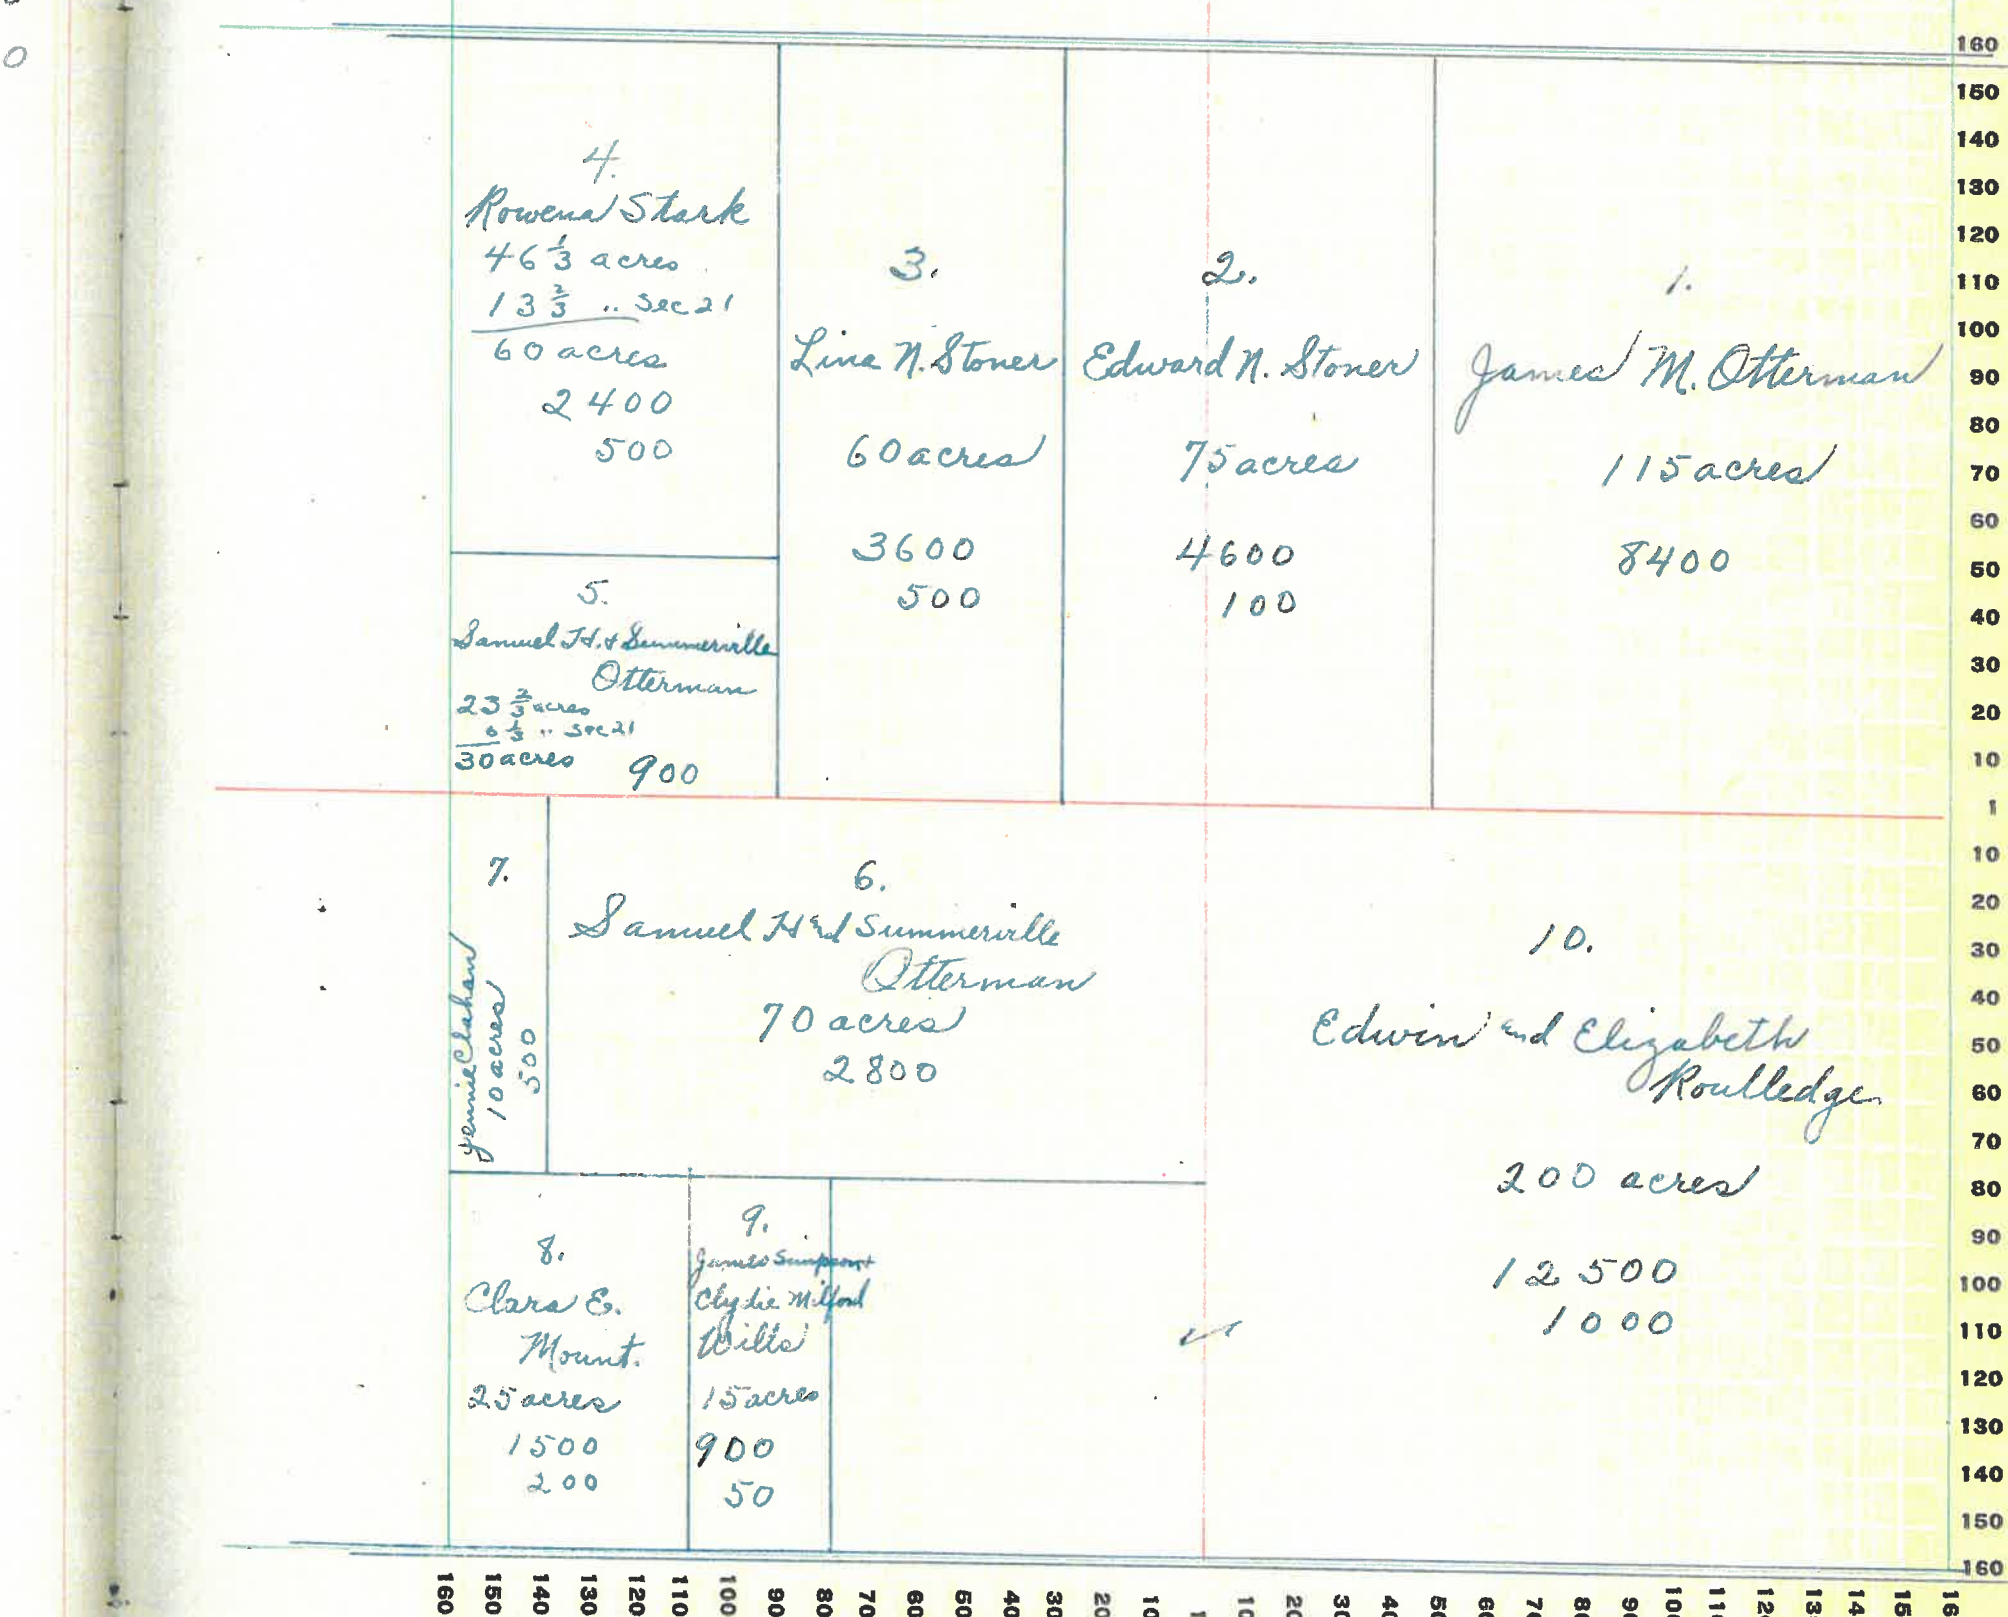 4.
Rowena Stark
46 1/3 acres
13 2/3 " Sec 21
60 acres
2400
500
3.
Lina N. Stoner
60 acres
3600
500
2.
Edward N. Stoner
75 acres
4600
100
1.
James M. Otterman
115 acres
8400
5.
Samuel H. & Summerville
Otterman
23 2/3 acres
6 1/3 " Sec 21
30 acres 900
7.
Jennie Clahan
10 acres
500
6.
Samuel H and Summerville
Otterman
70 acres
2800
10.
Edwin and Elizabeth
Roulledge
200 acres
12500
1000
8.
Clara E.
Mount.
25 acres
1500
200
9.
James Simpson &
Clydie Milford
Wills
15 acres
900
50
160
150
140
130
120
110
100
90
80
70
60
50
40
30
20
10
1
10
20
30
40
50
60
70
80
90
100
110
120
130
140
150
160
160 150 140 130 120 110 100 90 80 70 60 50 40 30 20 10 1 10 20 30 40 50 60 70 80 90 100 110 12 13 14 15 16